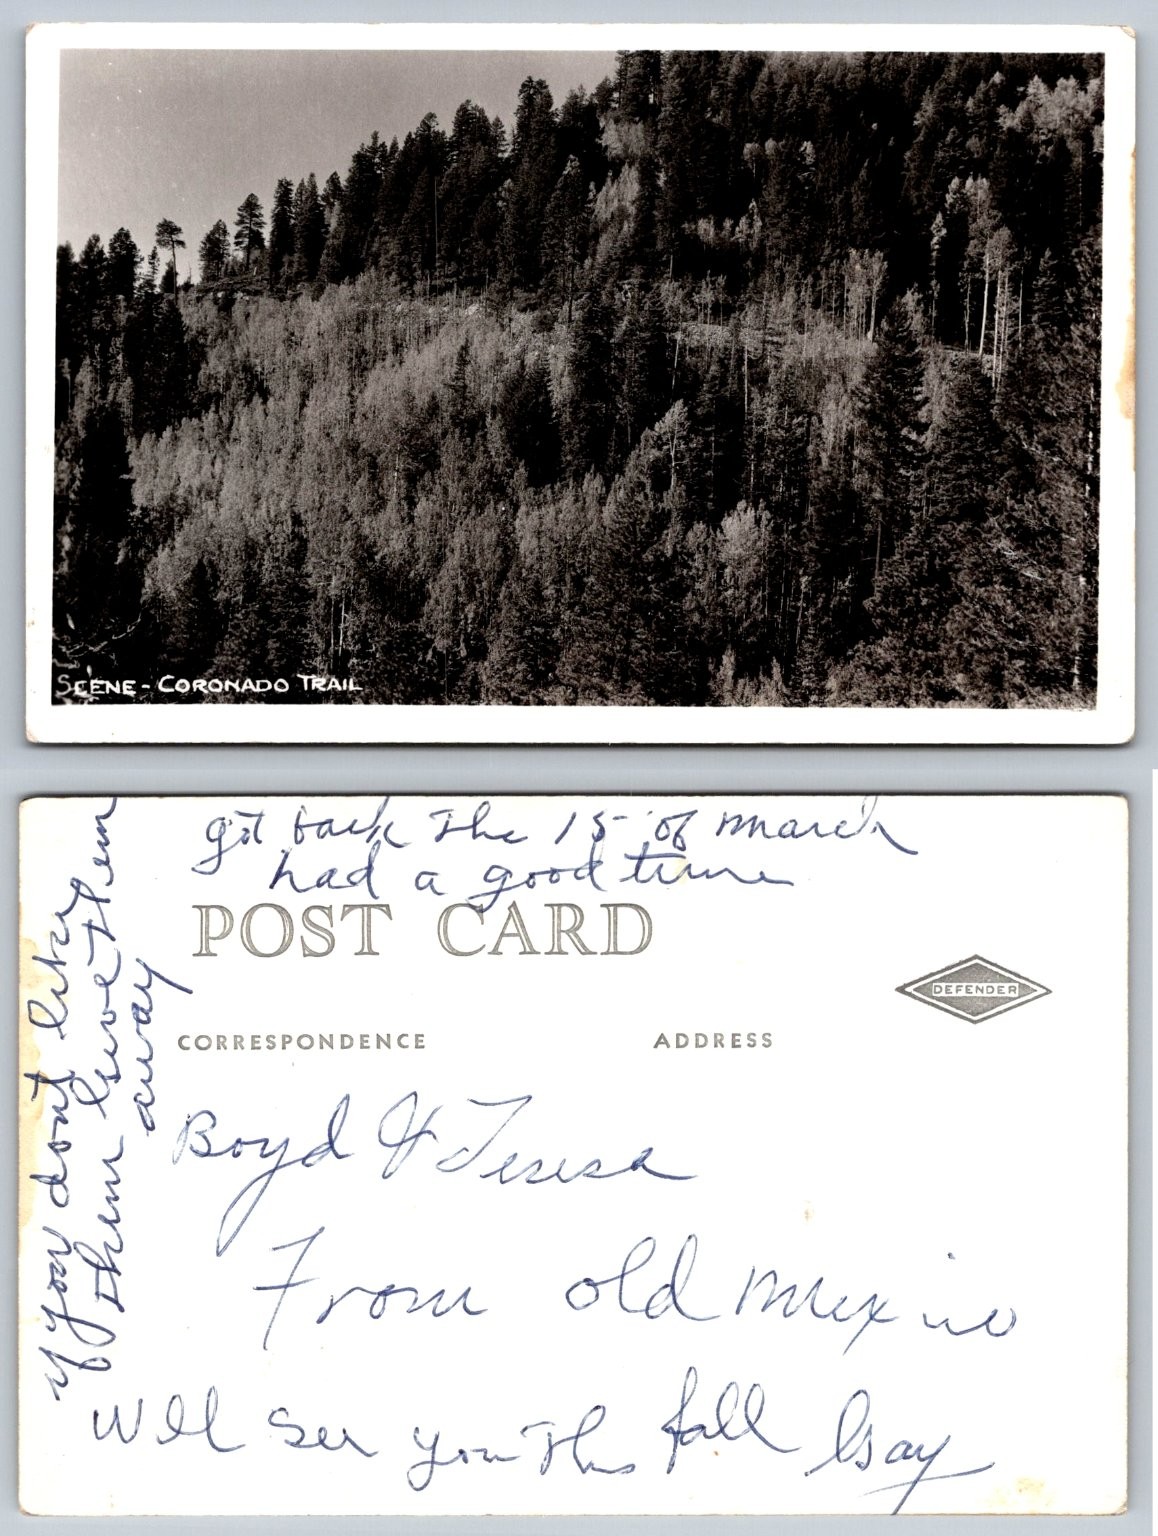 SCENE - CORONADO TRAIL
got back the 15 of march
had a good time
POST CARD
DEFENDER
CORRESPONDENCE
ADDRESS
Boyd & Teresa
From old Mexico
Will see you this fall
if you dont like
them give them
away